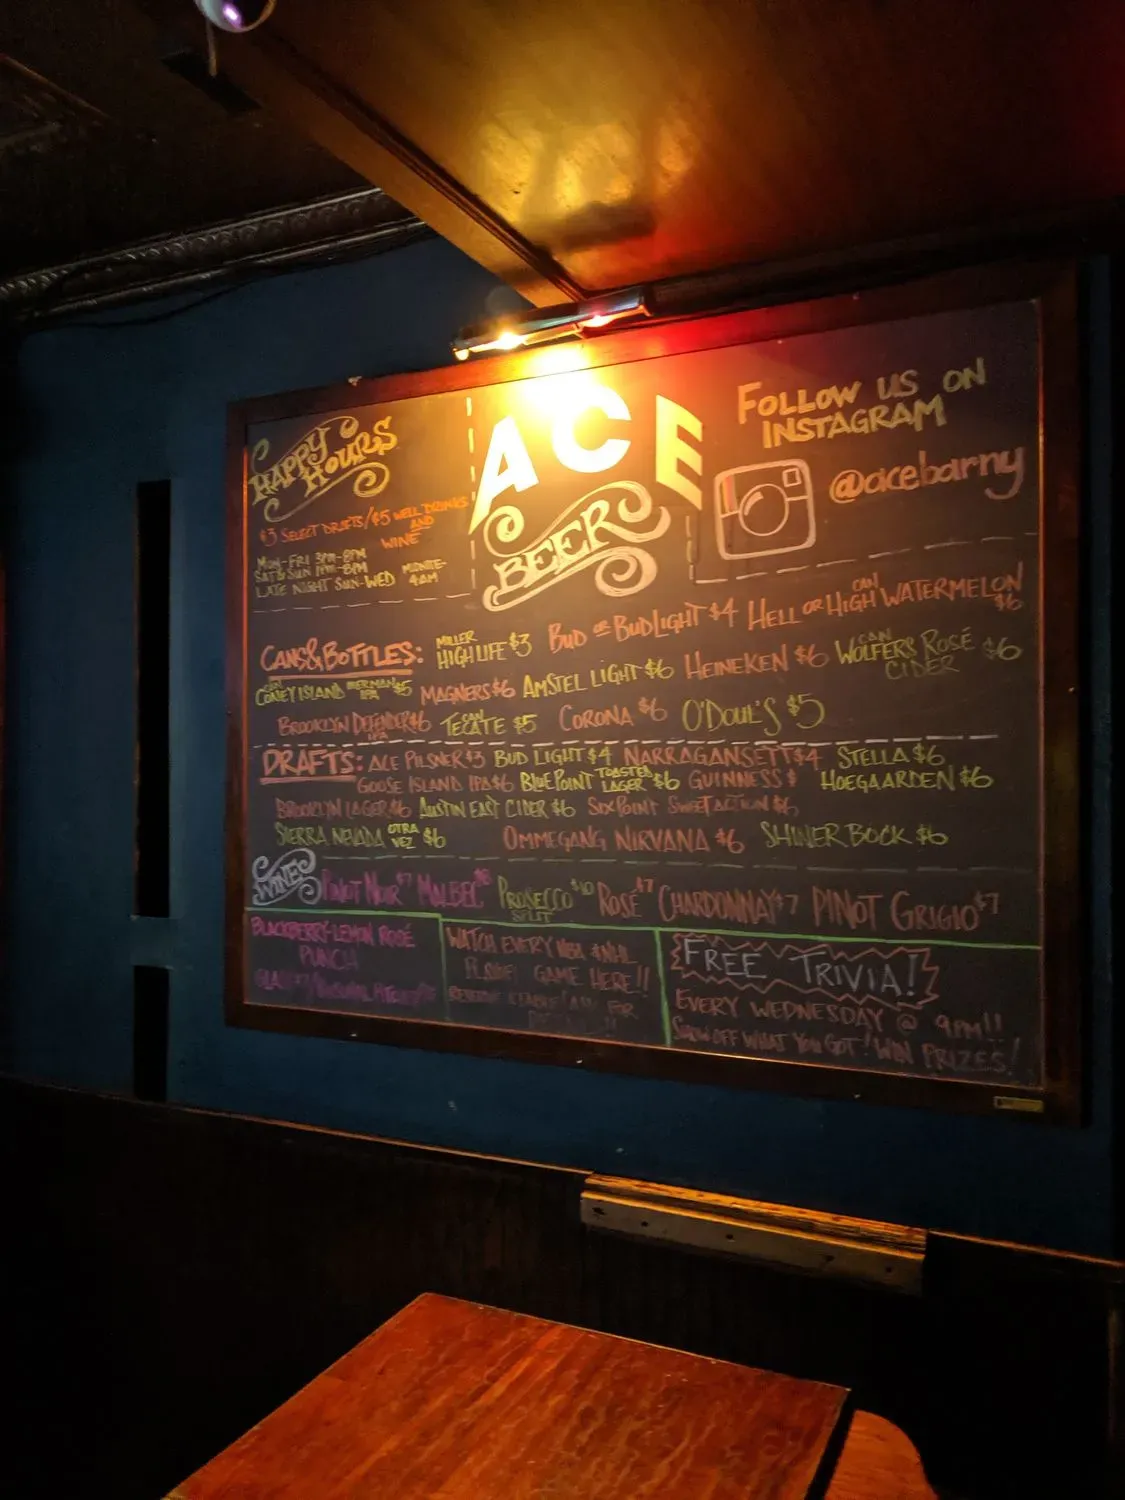 HAPPY
HOURS
$3 SELECT DRAFTS/$5 WELL DRINKS
AND
WINE
MON-FRI 3PM-8PM
SAT & SUN 1PM-8PM
LATE NIGHT SUN-WED MIDNITE-
4AM
ACE
BEER
FOLLOW US ON
INSTAGRAM
@acebarny
CANS & BOTTLES: MILLER HIGH LIFE $3 BUD OR BUD LIGHT $4 HELL OR HIGH WATERMELON CAN $6
CONEY ISLAND MERMAN IPA $5 MAGNERS $6 AMSTEL LIGHT $6 HEINEKEN $6 WOLFERS ROSÉ CAN CIDER $6
BROOKLYN DEFENDER IPA $6 TECATE CAN $5 CORONA $6 O'DOUL'S $5
DRAFTS: ACE PILSNER $3 BUD LIGHT $4 NARRAGANSETT $4 STELLA $6
GOOSE ISLAND IPA $6 BLUE POINT TOASTED LAGER $6 GUINNESS $ HOEGAARDEN $6
BROOKLYN LAGER $6 AUSTIN EAST CIDER $6 SIXPOINT SWEET ACTION $6
SIERRA NEVADA OTRA VEZ $6 OMMEGANG NIRVANA $6 SHINER BOCK $6
WINES PINOT NOIR $7 MALBEC $8 PROSECCO SPLIT $10 ROSÉ $7 CHARDONNAY $7 PINOT GRIGIO $7
BLACKBERRY-LEMON ROSÉ
PUNCH
WATCH EVERY NBA & NHL
PLAYOFF GAME HERE!!
FOR
FREE TRIVIA!
EVERY WEDNESDAY @ 9PM!!
SHOW OFF WHAT YOU GOT! WIN PRIZES!